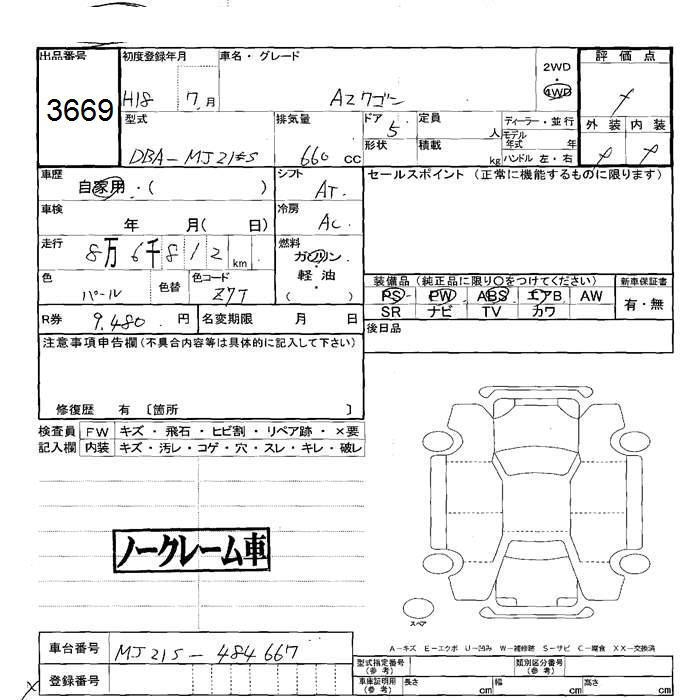 出品番号 初度登録年月 車名・グレード 評価点
3669 H18 7月 AZワゴン 2WD 4WD
外装 内装
型式 排気量 ドア 定員 ディーラー・並行
DBA-MJ21S 660 cc 5 人 モデル年式 年
形状 積載 kg ハンドル 左・右
車歴 シフト セールスポイント (正常に機能するものに限ります)
自家用・( ) AT
車検 冷房
年 月( 日) AC
走行 燃料
8万6千812km ガソリン・軽油
( )
色 色替 色コード 装備品 (純正品に限り○をつけてください) 新車保証書
パール Z7T PS PW ABS エアB AW 有・無
SR ナビ TV カワ
R券 9,480 円 名変期限 月 日 後日品
注意事項申告欄(不具合内容等は具体的に記入して下さい)
修復歴 有 〔箇所 〕
検査員 FW キズ・飛石・ヒビ割・リペア跡・×要
記入欄 内装 キズ・汚レ・コゲ・穴・スレ・キレ・破レ
ノークレーム車
スペア
A-キズ E-エクボ U-凹み W-補修跡 S-サビ C-腐食 XX-交換済
車台番号 MJ21S-484667
登録番号
型式指定番号(参考) 類別区分番号(参考)
車庫証明用(参考) 長さ cm 幅 cm 高さ cm